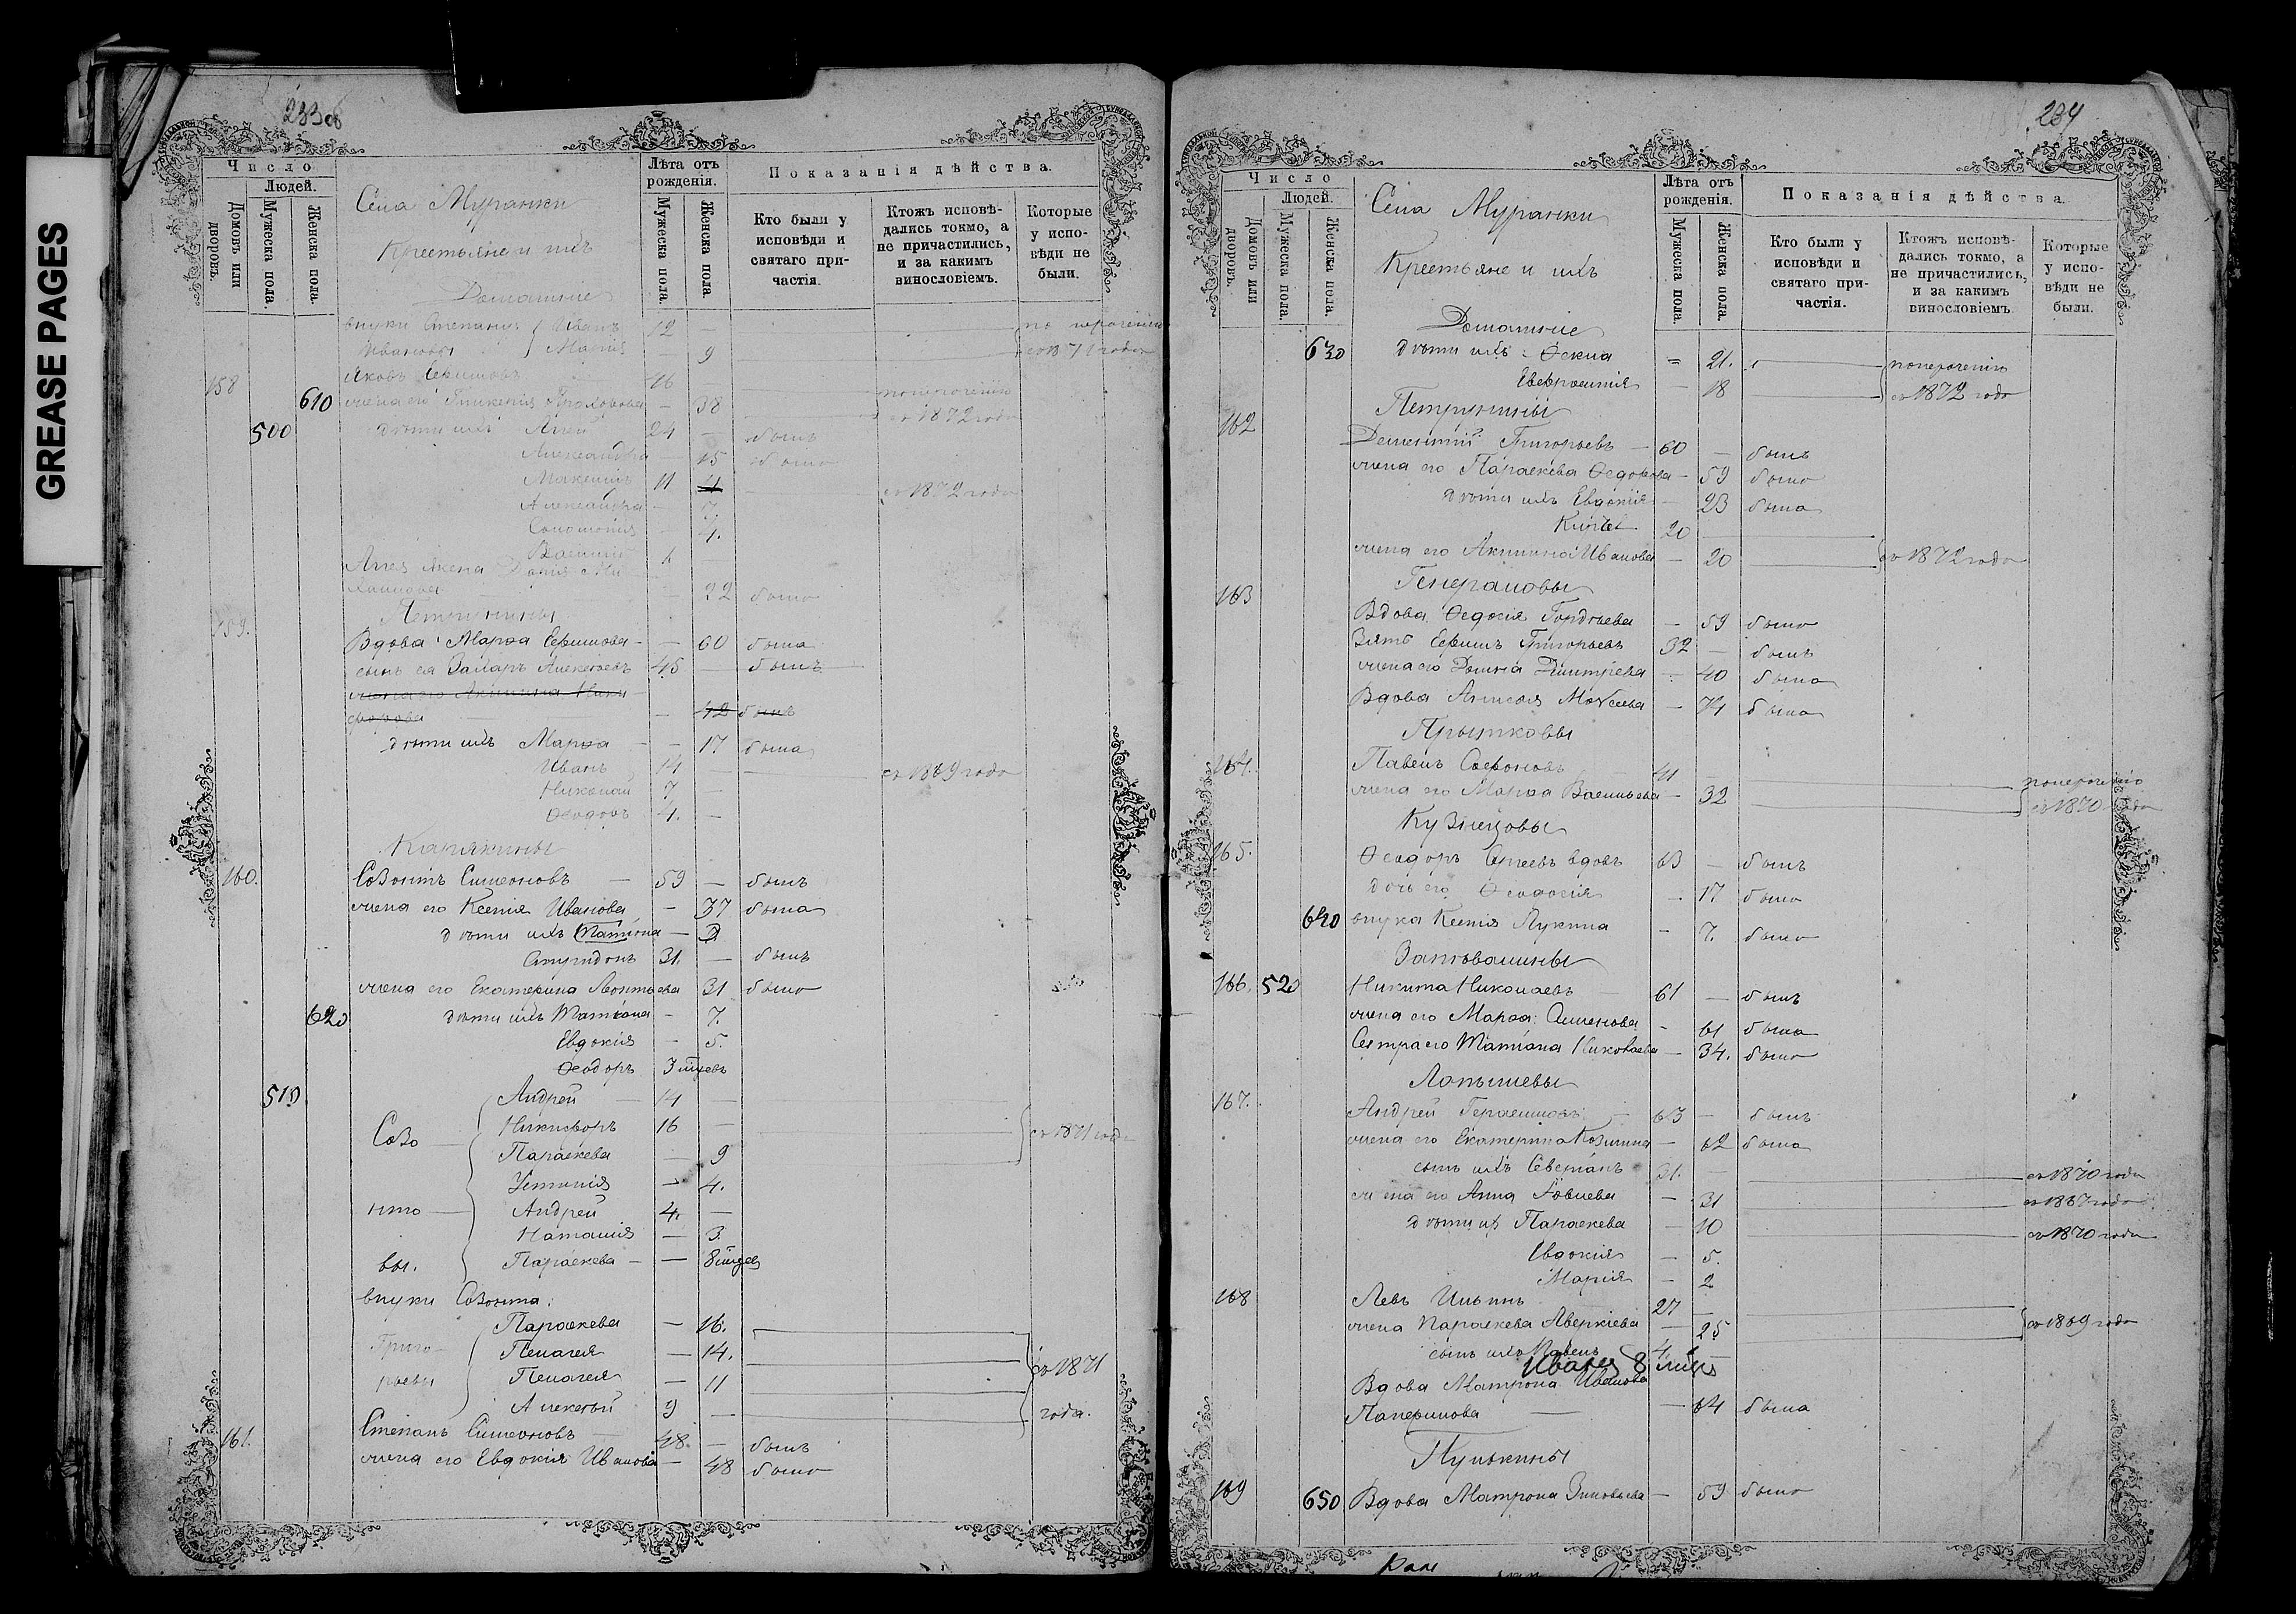 GREASE PAGES
233 об
Число
Людей.
Домовъ или дворовъ.
Мужеска пола.
Женска пола.
Села Муранки
Крестьяне и ихъ
Домашніе
Лѣта отъ рожденія.
Мужеска пола.
Женска пола.
Показанія дѣйства.
Кто были у исповѣди и святаго причастія.
Ктожъ исповѣдались токмо, а не причастились, и за какимъ винословіемъ.
Которые у исповѣди не были.
внуки Степаниды Иванъ 12 —
Ивановы Марія — 9
158 Яковъ Ефимовъ 46 —
610 жена его Гликерія — 38 съ 1872 года
500 дѣти ихъ 24 — былъ
Александра — 15 была
Максимъ 11 съ 1872 года
Александра — 7.
Соломонія — 4.
Василій
— 22 была
159.
Вдова Марѳа Ефимова — — 60 была
сынъ ея Захаръ Алексѣевъ 45 — былъ
жена его Акилина Ники
форова — 42 была
дѣти ихъ Марѳа — — 17 была
Иванъ 14 — съ 1869 года
Николай 7. —
Ѳеодоръ 4. —
Карякины
160. Созонтъ Симеоновъ — 59 — былъ
жена его Ксенія Иванова — 37 была
дѣти ихъ Татіана —
Спиридонъ 31. — былъ
жена его Екатерина Леонтьева 31 была
620 дѣти ихъ Татіана — 7.
Евдокія — 5.
Ѳеодоръ 3 мѣсяц
510 Андрей — 14 —
Созо Никифоръ 16 —
Параскева — 9 съ 1871 года
Устинія — 4.
нто Андрей 4. —
Наталія — 3.
вы. Параскева — — 8 мѣсяц
внуки Созонта:
Параскева — 16.
Григо Пелагея — 14. съ 1871
рьевы Пелагея — 11
Алексѣй 9 — года.
161. Степанъ Симеоновъ 48. — былъ
жена его Евдокія Иванова — 48 была
234
Число
Людей.
Домовъ или дворовъ.
Мужеска пола.
Женска пола.
Села Муранки
Крестьяне и ихъ
Домашніе
Лѣта отъ рожденія.
Мужеска пола.
Женска пола.
Показанія дѣйства.
Кто были у исповѣди и святаго причастія.
Ктожъ исповѣдались токмо, а не причастились, и за какимъ винословіемъ.
Которые у исповѣди не были.
630 дѣти ихъ Ѳекла 21. понерачению
Евфросинія — 18 съ 1872 года
162 Петрунины
Дементій Григорьевъ — 60 — былъ
жена его Параскева Ѳедорова — 59 была
дѣти ихъ Евдокія — 23 была
20
жена его Акилина Иванова — 20 съ 1872 года
163 Генераловы
Вдова Ѳедосія Гордѣева — 59 была
Зять Ефимъ Григорьевъ 32 — былъ
жена его Домна Димитріева 40 была
Вдова Анисія Моѵсеева — 74 была
Прытковы
164. Павелъ Софоновъ 41 — понерачению
жена его Марѳа Васильева — 32 съ 1870 года
Кузнецовы
165. Ѳеодоръ Сергеевъ вдовъ 63 — былъ
дочь его Ѳеодосія — 17 была
640 внука Ксенія Лукина — 7. была
166. 520 Никита Николаевъ 61 — былъ
жена его Марѳа Семенова — 61 была
Сестра его Татіана Николаева — 34. была
Лапышевы
167. Андрей Герасимовъ — 63 — былъ
жена его Екатерина Козмина — 62 была
сынъ ихъ Северіанъ 31. — съ 1870 года
жена его Анна — 31 съ 1867 года
дѣти их Параскева — 10 съ 1870 года
Евдокія — 5.
Марія — 2
168 Левъ Ильинъ 27 —
жена Параскева Аверкіева — 25 съ 1869 года
сынъ ихъ Павелъ 4.
Иванъ 8
Вдова Матрона Иванова
— 64 была
Пулькины
169 650 Вдова Матрона Зиновьева — 59 была